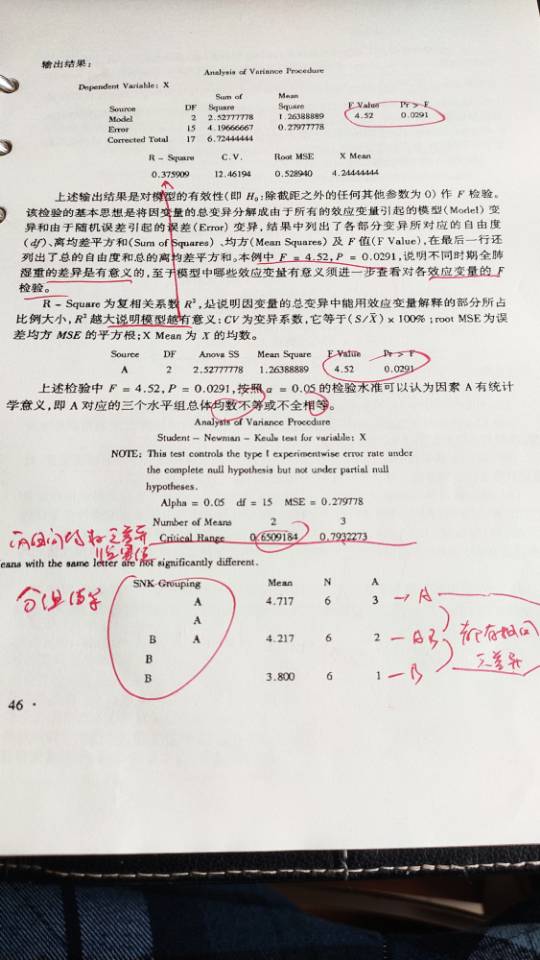 输出结果：
Analysis of Variance Procedure
Dependent Variable: X
Sum of Mean
Source DF Square Square F Value Pr > F
Model 2 2.52777778 1.26388889 4.52 0.0291
Error 15 4.19666667 0.27977778
Corrected Total 17 6.72444444
R - Square C.V. Root MSE X Mean
0.375909 12.46194 0.528940 4.24444444
上述输出结果是对模型的有效性(即 H₀:除截距之外的任何其他参数为 0) 作 F 检验。
该检验的基本思想是将因变量的总变异分解成由于所有的效应变量引起的模型(Model) 变
异和由于随机误差引起的误差(Error) 变异, 结果中列出了各部分变异所对应的自由度
(df)、离均差平方和(Sum of Squares)、均方(Mean Squares) 及 F 值(F Value), 在最后一行还
列出了总的自由度和总的离均差平方和。本例中 F = 4.52, P = 0.0291, 说明不同时期全肺
湿重的差异是有意义的, 至于模型中哪些效应变量有意义须进一步查看对各效应变量的 F
检验。
R - Square 为复相关系数 R², 是说明因变量的总变异中能用效应变量解释的部分所占
比例大小, R² 越大说明模型越有意义: CV 为变异系数, 它等于 (S/X̄) × 100% ; root MSE 为误
差均方 MSE 的平方根; X Mean 为 X 的均数。
Source DF Anova SS Mean Square F Value Pr > F
A 2 2.52777778 1.26388889 4.52 0.0291
上述检验中 F = 4.52, P = 0.0291, 按照 α = 0.05 的检验水准可以认为因素 A 有统计
学意义, 即 A 对应的三个水平组总体均数不等或不全相等。
Analysis of Variance Procedure
Student - Newman - Keuls test for variable: X
NOTE: This test controls the type I experimentwise error rate under
the complete null hypothesis but not under partial null
hypotheses.
Alpha = 0.05 df = 15 MSE = 0.279778
Number of Means 2 3
两组间均数差异
Critical Range 0.6509184 0.7932273
eans with the same letter are not significantly different.
SNK Grouping Mean N A
分组
A 4.717 6 3 → A
A
B A 4.217 6 2 — AB
都有相同
无差异
B
B 3.800 6 1 — B
46 ·